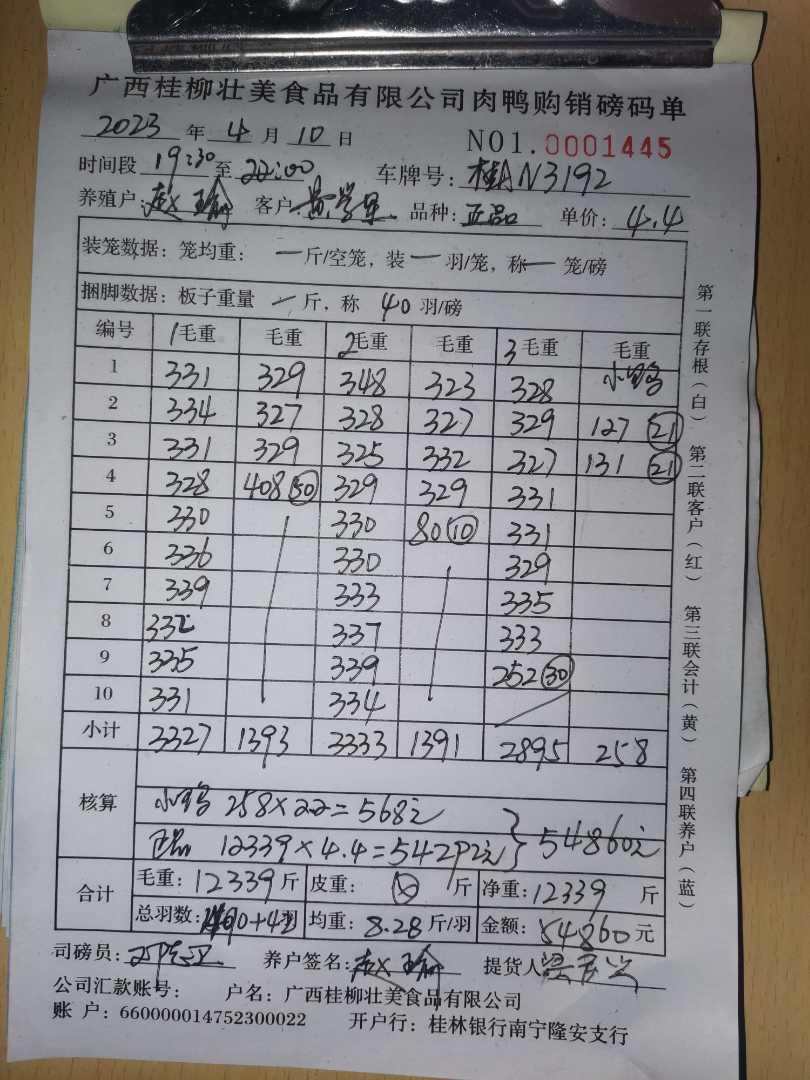 广西桂柳壮美食品有限公司肉鸭购销磅码单
2023 年 4 月 10 日 NO1.0001445
时间段 19:30 至 22:00 车牌号: 桂AN3192
养殖户: 赵 客户: 黄 品种: 正品 单价: 4.4
装笼数据: 笼均重: 一 斤/空笼, 装 一 羽/笼, 称 一 笼/磅
捆脚数据: 板子重量 一 斤, 称 40 羽/磅
编号 1毛重 毛重 2毛重 毛重 3毛重 毛重
1 331 329 348 323 328 小
2 334 327 328 327 329 127 21
3 331 329 325 332 327 131 21
4 328 408 50 329 329 331
5 330 330 80 10 331
6 336 330 329
7 339 333 335
8 332 337 333
9 335 339 252 30
10 331 334
小计 3327 1393 3333 1391 2895 258
核算 小 258×2.2=568元
正品 12339×4.4=54292元 } 54860元
合计 毛重: 12339 斤 皮重: 斤 净重: 12339 斤
总羽数: +42 羽 均重: 8.28 斤/羽 金额: 54860 元
司磅员: 养户签名: 赵 提货人
公司汇款账号: 户名: 广西桂柳壮美食品有限公司
账 户: 660000014752300022 开户行: 桂林银行南宁隆安支行
第一联存根(白) 第二联客户(红) 第三联会计(黄) 第四联养户(蓝)